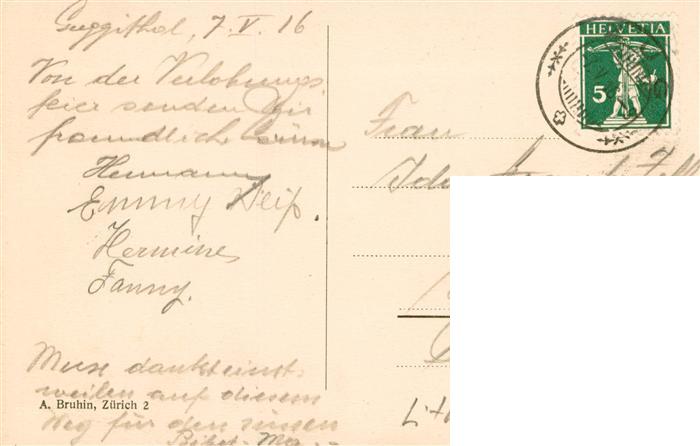 Guggithal, 7. V. 16
Von der Verlobungs
feier senden Dir
freundliche Grüsse
Hermann
Emmy Weiß.
Hermine
Fanny.
Muse dankt einst-
weilen auf diesem
Weg für den
A. Bruhin, Zürich 2
HELVETIA
5
Frau